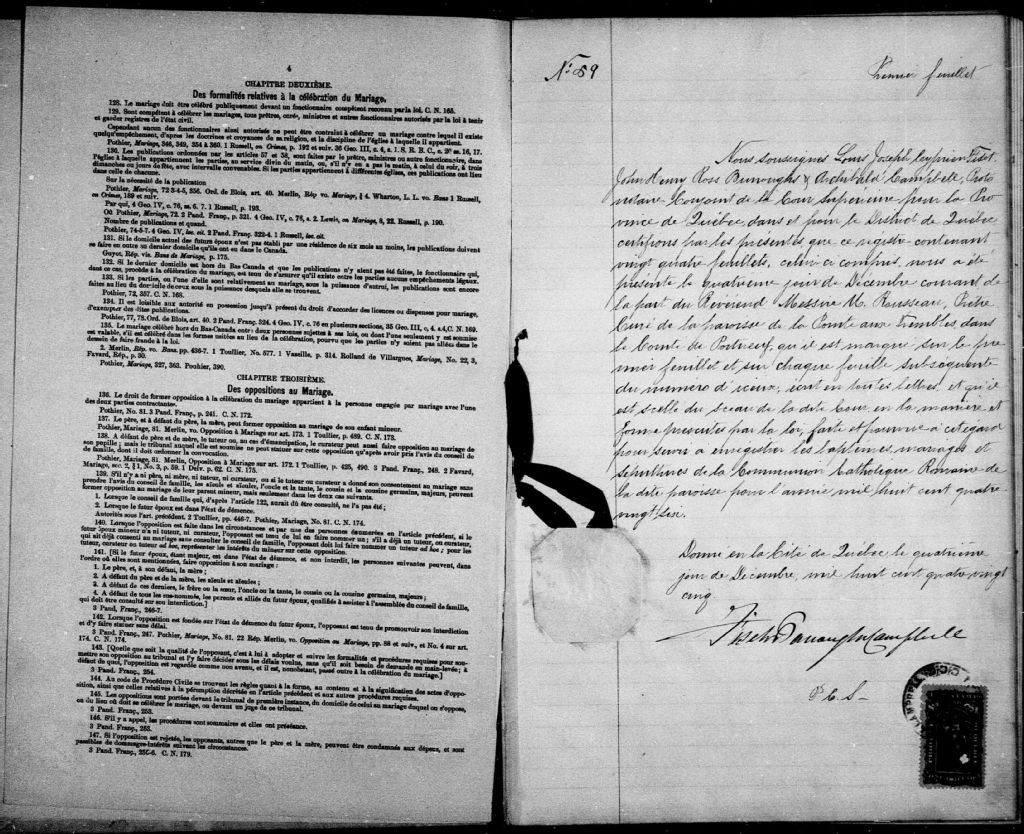 4
CHAPITRE DEUXIÈME.
Des formalités relatives à la célébration du Mariage.
128. Le mariage doit être célébré publiquement devant un fonctionnaire compétent reconnu par la loi. C. N. 165.
129. Sont compétent à célébrer les mariages, tous prêtres, curés, ministres et autres fonctionnaires autorisés par la loi à tenir
et garder registres de l'état civil.
Cependant aucun des fonctionnaires ainsi autorisés ne peut être contraint à célébrer un mariage contre lequel il existe
quelqu'empêchement, d'après les doctrines et croyances de sa religion, et la discipline de l'église à laquelle il appartient.
Pothier, Mariage, 346, 349, 354 à 360. 1 Russell, on Crimes, p. 192 et suiv. 35 Geo. III, c. 4, s. 1. S. R. B. C., c. 20 ss. 16, 17.
130. Les publications ordonnées par les articles 57 et 58, sont faites par le prêtre, ministre ou autre fonctionnaire, dans
l'église à laquelle appartiennent les parties, au service divin du matin, ou, s'il n'y en a pas le matin, à celui du soir, à trois
dimanches ou jours de fête, avec intervalle convenable. Si les parties appartiennent à différentes églises, ces publications ont lieu
dans celle de chacune.
Sur la nécessité de la publication
Pothier, Mariage, 72 3-4-5, 356. Ord. de Blois, art. 40. Merlin, Rép vo. Mariage, § 4. Wharton, L. L. vo. Bans 1 Russell,
on Crimes, 189 et suiv.
Par qui, 4 Geo. IV, c. 76, ss. 6, 7. 1 Russell, p. 193.
Où Pothier, Mariage, 72. 2 Pand. Franç., p. 321. 4 Geo. IV, c. 76, s. 2. Lewis, on Mariage, 8, 22. Russell, p. 190.
Nombre de publications et quand.
Pothier, 74-5-7. 4 Geo. IV, loc. cit. 2 Pand. Franç. 322-4. 1 Russell, loc. cit.
131. Si le domicile actuel des futurs époux n'est pas établi par une résidence de six mois au moins, les publications doivent
se faire en outre au dernier domicile qu'ils ont eu dans le Canada.
Guyot, Rép. vis. Bans de Mariage, p. 175.
132. Si le dernier domicile est hors du Bas-Canada et que les publications n'y aient pas été faites, le fonctionnaire qui,
dans ce cas, procède à la célébration du mariage, est tenu de s'assurer qu'il existe entre les parties aucuns empêchements légaux.
133. Si les parties, ou l'une d'elle sont relativement au mariage, sous la puissance d'autrui, les publications sont encore
faites au lieu du domicile de ceux sous la puissance desquels elle se trouvent.
Pothier, 72, 357. C. N. 168.
134. Il est loisible aux autorité en possession jusqu'à présent du droit d'accorder des licences ou dispenses pour mariage,
d'exempter des dites publications.
Pothier, 77, 78. Ord. de Blois, art. 40. 2 Pand. Franç. 324. 4 Geo. IV. c. 76 en plusieurs sections, 35 Geo. III, c. 4, s.4, C. N. 169.
135. Le mariage célébré hors du Bas-Canada entre deux personnes sujettes à ses lois, ou dont l'une seulement y est soumise
est valable, s'il est célébré dans les formes usitées au lieu de la célébration, pourvu que les parties n'y soient pas allées dans le
dessein de faire fraude à la loi.
2. Merlin, Rép. vo. Bans. pp. 436-7. 1 Toullier, No. 577. 1 Vazeille, p. 314. Rolland de Villargues, Mariage, No. 22, 3,
Favard, Rép., p. 30.
Pothier, Mariage, 327, 363. Pouhier, 390.
CHAPITRE TROISIÈME.
Des oppositions au Mariage.
136. Le droit de former opposition à la célébration du mariage appartient à la personne engagée par mariage avec l'une
des deux parties contractantes.
Pothier, No. 81. 3 Pand. Franç., p. 241. C. N. 172.
137. Le père, et à défaut du père, la mère, peut former opposition au mariage de son enfant mineur.
Pothier, Mariage, 81. Merlin, vo. Opposition à Mariage sur art. 173. 1 Toullier, p. 489. C. N. 173.
138. A défaut de père et de mère, le tuteur ou, au cas d'émancipation, le curateur peut aussi faire opposition au mariage de
son pupille; mais le tribunal auquel elle est soumise ne peut statuer sur cette opposition qu'après avoir pris l'avis du conseil de
famille, dont il doit ordonner la convocation.
Pothier, Mariage, 81. Merlin, Opposition à Mariage sur art. 172. 1 Toullier, p. 425, 490. 3 Pand. Franç., 248. 2 Favard,
Mariage, sec. 2, § 1, No. 3, p. 59. 1 Delv. p. 62. C. N. 175.
139. S'il n'y a ni père, ni mère, ni tuteur, ni curateur, ou si le tuteur ou curateur a donné son consentement au mariage sans
prendre l'avis du conseil de famille, les aïeuls et aïeules, l'oncle et la tante, le cousin et la cousine germains, majeurs, peuvent
former opposition au mariage de leur parent mineur, mais seulement dans les deux cas suivants.
1. Lorsque le conseil de famille qui, d'après l'article 122, aurait dû être consulté, ne l'a pas été;
2. Lorsque le futur époux est dans l'état de démence.
Autorités sous l'art. précédent. 2 Toullier, pp. 446-7. Pothier, Mariage, No. 81. C. N. 174.
140. Lorsque l'opposition est faite dans les circonstances et par une des personnes énumérées en l'article précédent, si le
futur époux mineur n'a ni tuteur, ni curateur, l'opposant est tenu de lui en faire nommer un; s'il a déjà un tuteur ou curateur,
qui ait déjà consenti au mariage sans consulter le conseil de famille, l'opposant doit lui faire nommer un tuteur ad hoc; pour les
tuteur, curateur ou tuteur ad hoc, représenter les intérêts du mineur sur cette opposition.
141. [Si le futur époux, étant majeur, est dans l'état de démence, et non interdit, les personnes suivantes peuvent, dans
l'ordre où elles sont mentionnées, faire opposition à son mariage:
1. Le père, et, à son défaut, la mère;
2. A défaut du père et de la mère, les aïeuls et aïeules;
3. A défaut de ces derniers, le frère ou la sœur, l'oncle ou la tante, le cousin ou la cousine germains, majeurs;
4. A défaut de tous les sus-nommés, les parents et alliés du futur époux, qualifiés à assister à l'assemblée du conseil de famille,
qui doit être consulté sur son interdiction.]
3 Pand. Franç., 246-7.
142. Lorsque l'opposition est fondée sur l'état de démence du futur époux, l'opposant est tenu de promouvoir son interdiction
et d'y faire statuer sans délai.
3 Pand. Franç., 247. Pothier, Mariage, No. 81. 22 Rép. Merlin, vo. Opposition au Mariage, pp. 88 et suiv., et No. 4 sur art.
174. C. N. 174.
143. [Quelle que soit la qualité de l'opposant, c'est à lui à adopter et suivre les formalités et procédures requises pour sou-
mettre son opposition au tribunal et l'y faire décider sous les délais voulus, sans qu'il soit besoin de demande en main-levée; à
défaut de quoi, l'opposition est regardée comme non avenue, et il est, nonobstant, passé outre à la célébration du mariage.]
3 Pand. Franç., 254.
144. Au code de Procédure Civile se trouvent les règles quant à la forme, au contenu et à la signification des actes d'oppo-
sition, ainsi que celles relatives à la péremption décrétée en l'article précédent et aux autres procédures requises.
145. Les oppositions sont portées devant le tribunal de première instance, du domicile de celui au mariage duquel on s'oppose,
ou du lieu où doit se célébrer le mariage, ou devant un juge de ce tribunal.
3 Pand. Franç., 253.
146. S'il y a appel, les procédures sont sommaires et elles ont préséance.
3 Pand. Franç., 253.
147. Si l'opposition est rejetée, les opposants, autres que le père et la mère, peuvent être condamnés aux dépens, et sont
passibles de dommages-intérêts suivant les circonstances.
3 Pand. Franç., 256-8. C. N. 179.
No. 89
Premier feuillet
Nous soussignés Louis Joseph Cyprien Fiset,
John Henry Ross Burroughs & Archibald Campbell, Proto
notaire Conjoint de la Cour Supérieure pour la Pro
vince de Québec, dans et pour le District de Québec
certifions par les présentes que ce régistre contenant
vingt quatre feuillets, celui ci compris, nous a été
présenté le quatrième jour de Décembre courant de
la part du Révérend Messire U. Rousseau, Prêtre
Curé de la paroisse de la Pointe aux Trembles, dans
le Comté de Portneuf, qu'il est marqué sur le pre
mier feuillet et sur chaque feuille subséquente
du numéro d'iceux, écrit en toutes lettres, et qu'il
est scellé du sceau de la dite Cour, en la manière et
forme présentés par la loi, faite et pourvue à cet égard
pour servir à enregistrer les baptêmes, mariages et
sépultures de la Communion Catholique Romaine de
la dite paroisse pour l'année mil huit cent quatre
vingt six.
Donné en la Cité de Québec le quatrième
jour de Décembre, mil huit cent quatre vingt
cinq.
Fiset Burroughs Campbell
P. C. S.